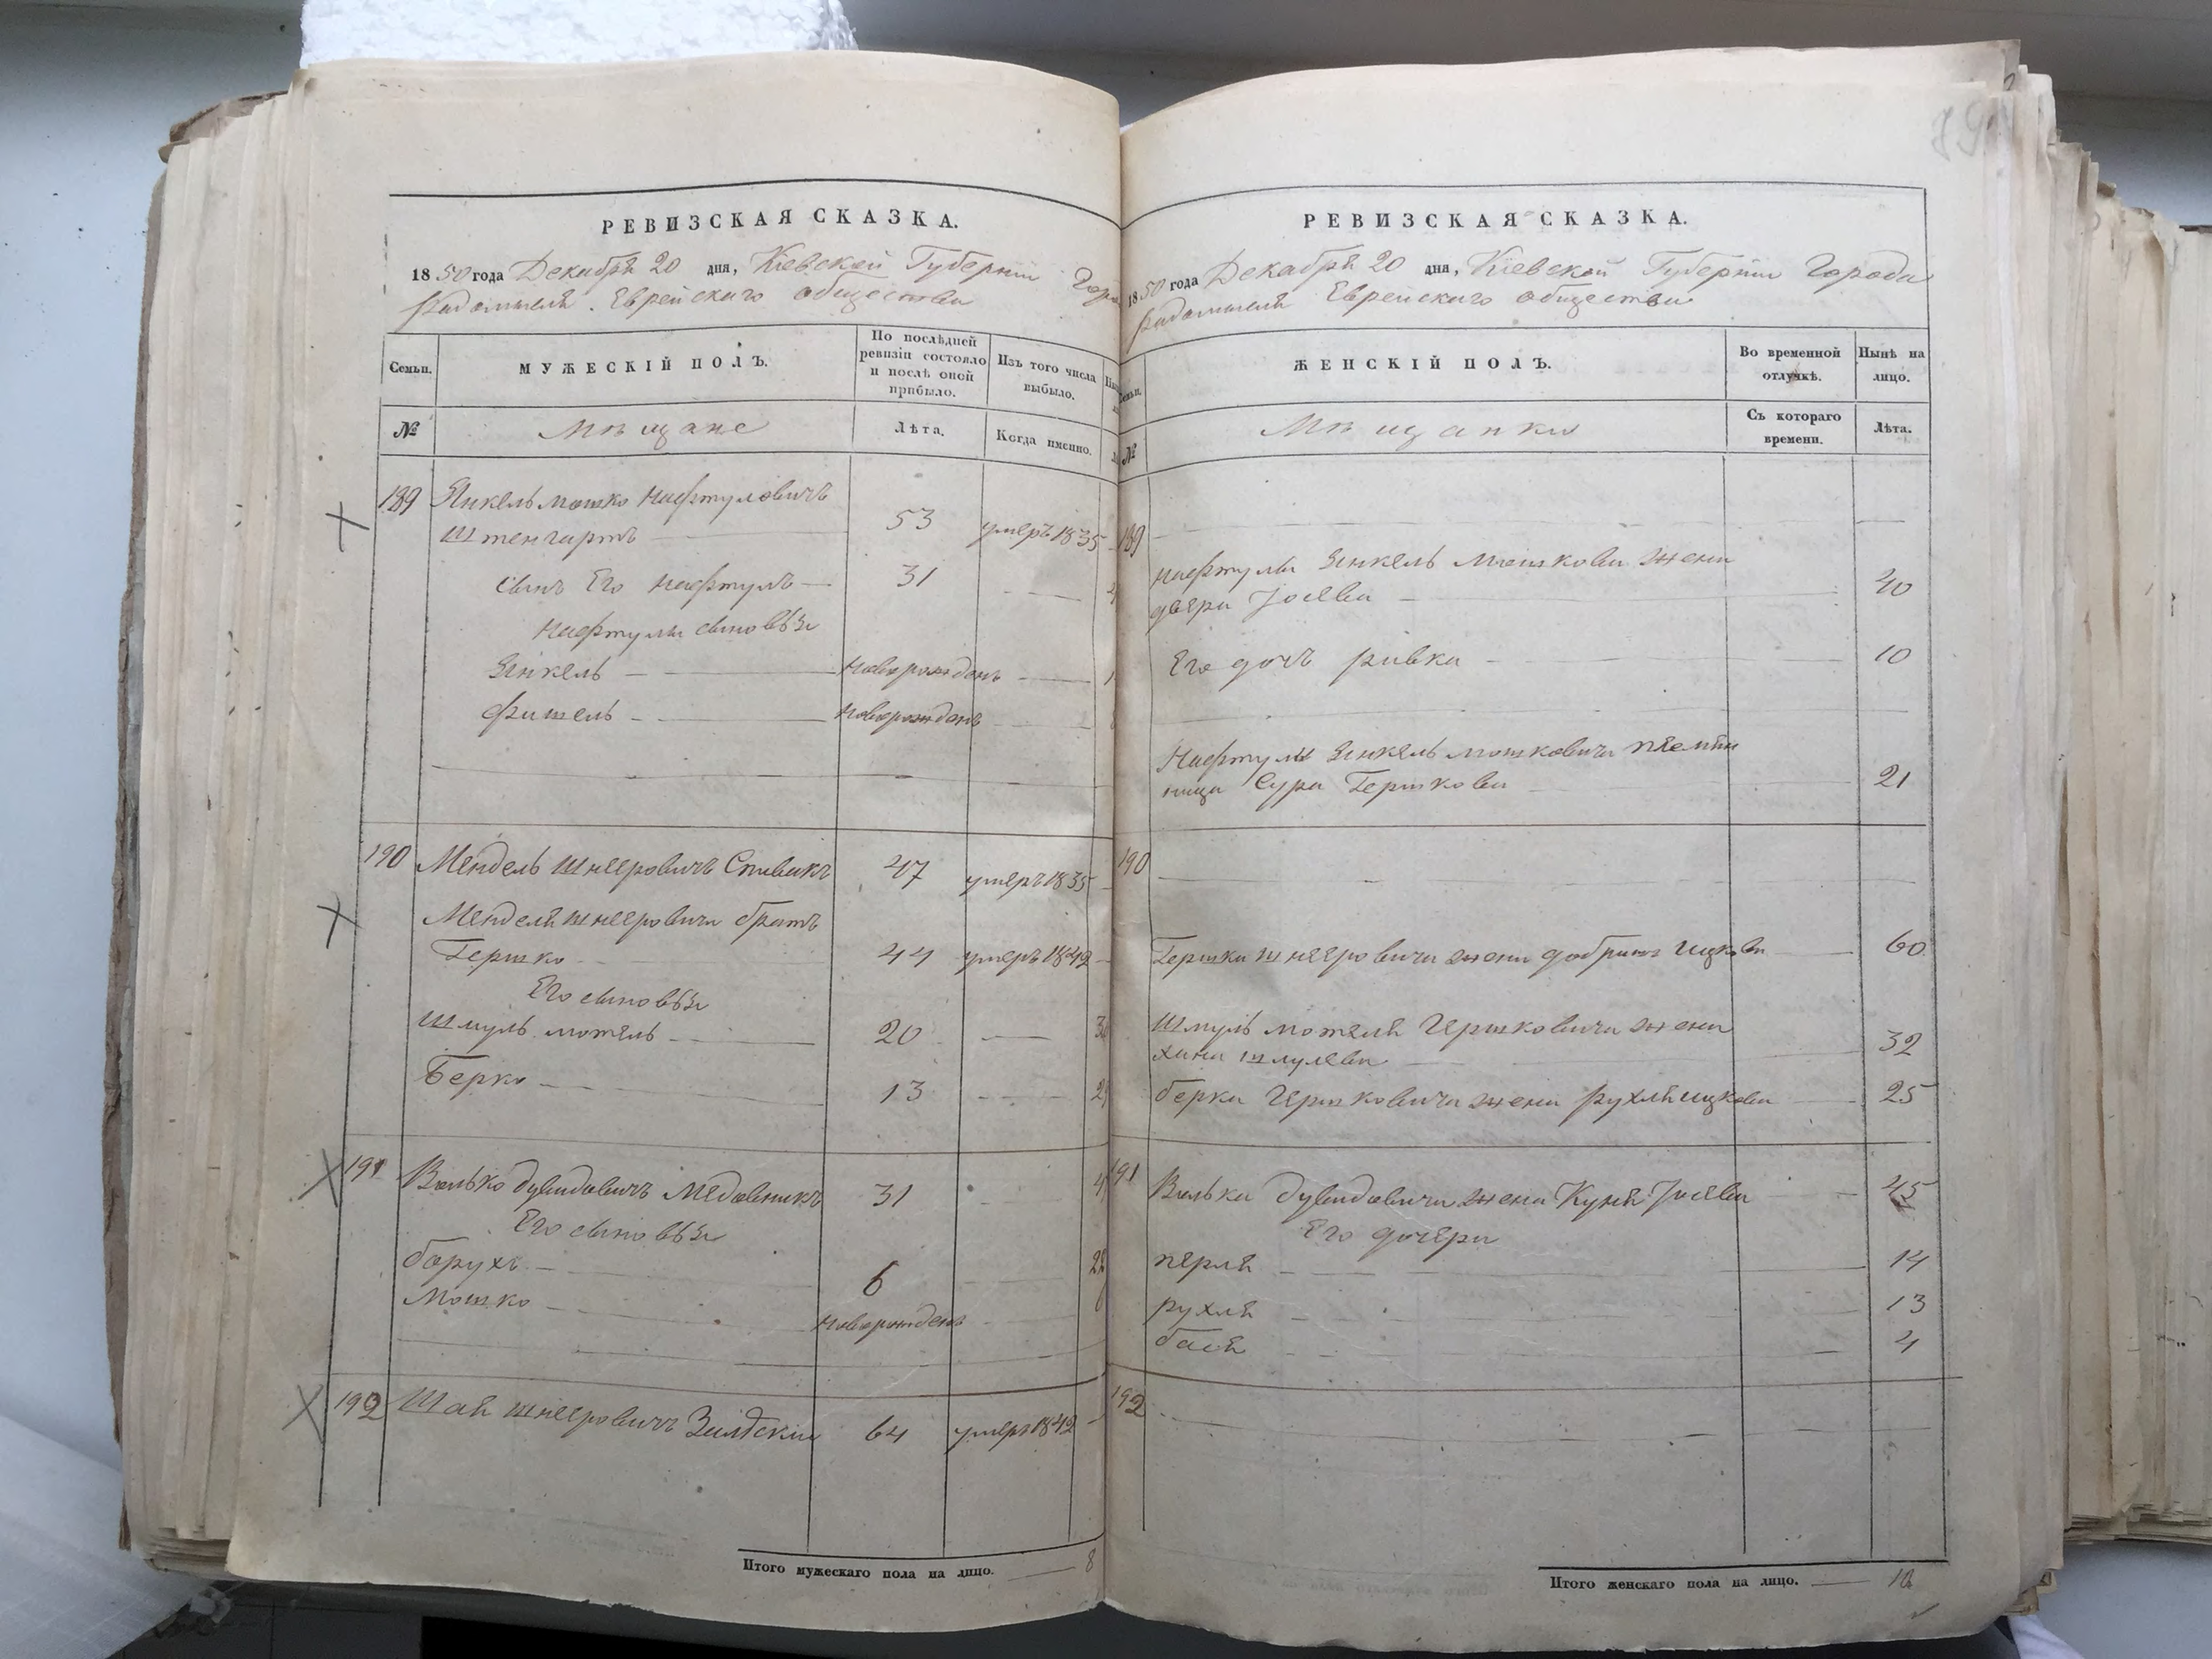 РЕВИЗСКАЯ СКАЗКА.
1850 года Декабря 20 дня, Кіевской Губерніи Горо
Радомысля Еврейскаго общества
Семьи.
МУЖЕСКІЙ ПОЛЪ.
По послѣдней ревизіи состояло и послѣ оной прибыло.
Изъ того числа выбыло.
№
Мѣщане
Лѣта.
Когда именно.
189 Янкель Мошко Нафтуловичъ
Штенгартъ 53 умеръ 1835
Сынъ Его Нафтуль 31
Нафтулы сыновья
Янкель новорожденъ
Фишель новорожденъ
190 Мендель Шнееровичъ Спивакъ 47 умеръ 1835
Менделя Шнееровича братъ
Гершко 44 умеръ 1842
Его сыновья
Шмуль Мотель 20
Берко 13
191 Волько Дувидовичъ Медовникъ 31
Его сыновья
Борухъ 6
Мошко новорожденъ
192 Шая Шнееровичъ 64 умеръ 1842
Итого мужескаго пола на лицо. 8
РЕВИЗСКАЯ СКАЗКА.
1850 года Декабря 20 дня, Кіевской Губерніи Города
Радомысля Еврейскаго общества
Семьи.
ЖЕНСКІЙ ПОЛЪ.
Во временной отлучкѣ.
Нынѣ на лицо.
№
Мѣщанки
Съ котораго времени.
Лѣта.
189
Нафтулы Янкель Мошкова жена
Двера Іосева 40
Его дочь Ривка 10
Нафтулы Янкель Мошковича племян
ница Сура Гершкова 21
190
Гершка Шнееровича жена Добрышъ Ицкова 60
Шмуль Мотеля Гершковича жена
Хана Шлулева 32
Берка Гершковича жена Рухля Ицкова 25
191 Волька Дувидовича жена Куня Іосева 45
Его дочери
Перля 14
Рухля 13
Бася 4
192
Итого женскаго пола на лицо. 10